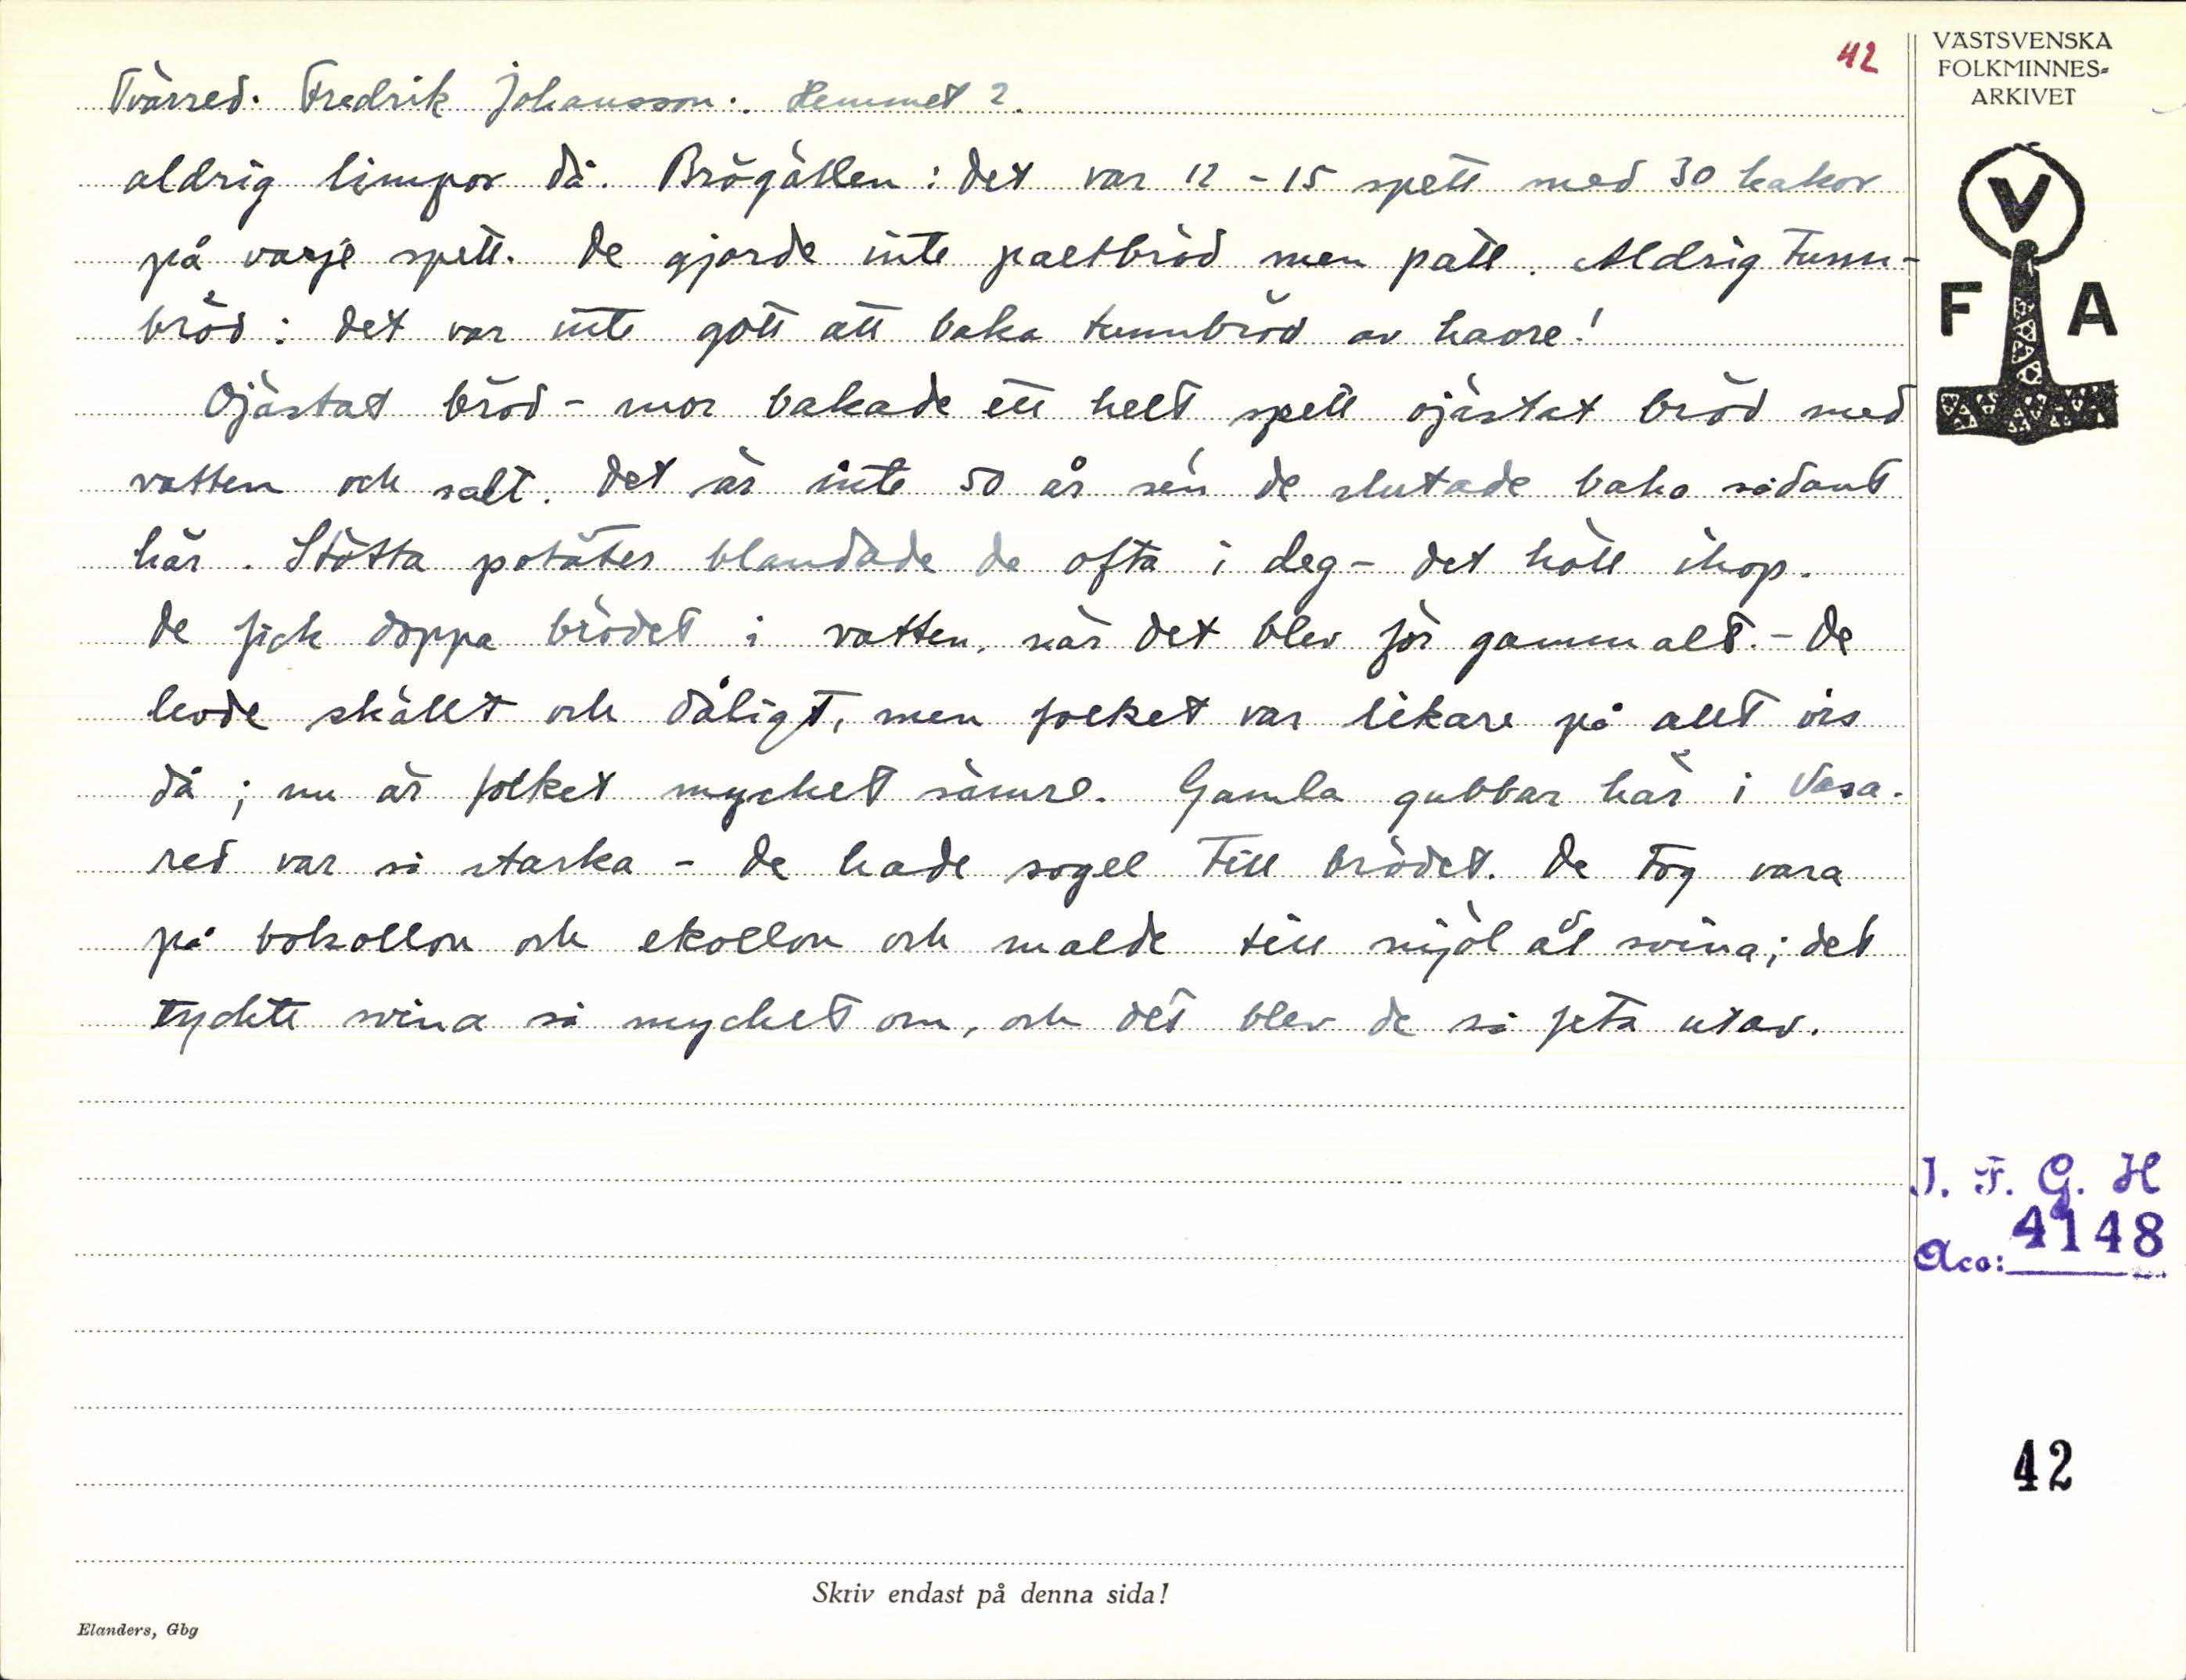 42
VÄSTSVENSKA
FOLKMINNES-
ARKIVET
Tvärred. Fredrik Johansson. Hemmet 2.
aldrig limpor då. Brögällen: det var 12 - 15 spett med 30 kakor
på varje spett. De gjorde inte paltbröd men palt. Aldrig tunn-
bröd: det var inte gott att baka tunnbröd av haore!
V
F A
Ojästat bröd - mor bakade ett helt spett ojästat bröd med
vatten och salt. Det är inte 50 år sén de slutade baka sådant
här. Stötta potäter blandade de ofta i deg - det höll ihop.
De fick doppa brödet i vatten, när det blev för gammalt. - De
levde skällt och dåligt, men folket var likare på allt vis
då; nu är folket mycket sämre. Gamla gubbar här i Vasa-
red var så starka - de hade sogel till brödet. De tog vara
på bokollon och ekollon och malde till mjöl åt svina; det
tyckte svina så mycket om, och det blev de så feta utav.
I. F. G. H
Acc: 4148
42
Skriv endast på denna sida!
Elanders, Gbg